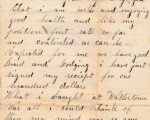 that i am well and enjoy
good health and like my
position first rate so far
and contented as can be
Expected for me we have good
Board and Lodging i have just
signed my receipt for one
hundred dollars
What i bought at
has all i could think of